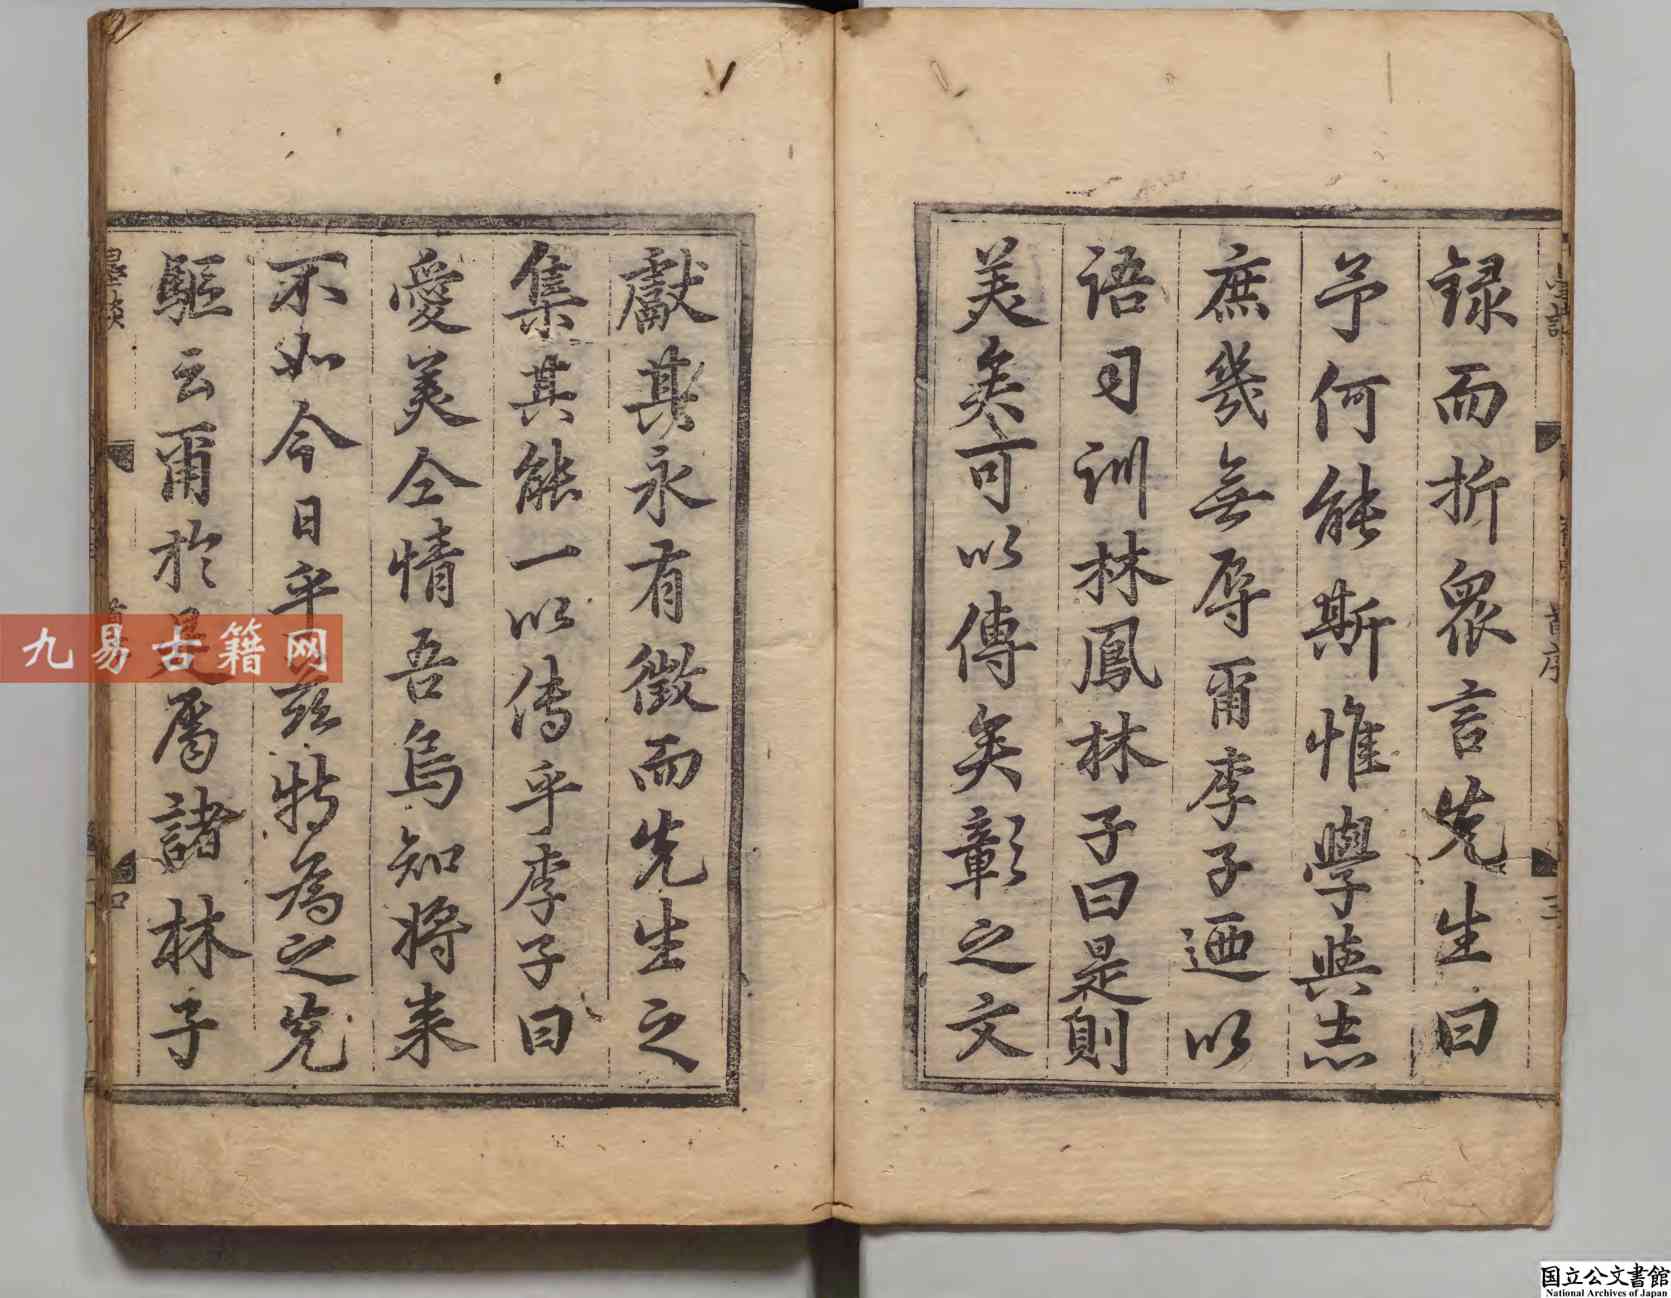 録而折眾言先生曰
予何能斯惟學與志
庶幾無辱爾李子迺以
語習訓林鳳林子曰是則
美矣可以傳矣彰之文
獻其永有徵而先生之
集其能一以传乎李子曰
愛美仝情吾烏知將来
不如今日乎兹特為之先
驅云爾於是屬諸林子
墨談
九易古籍网
国立公文書館
National Archives of Japan